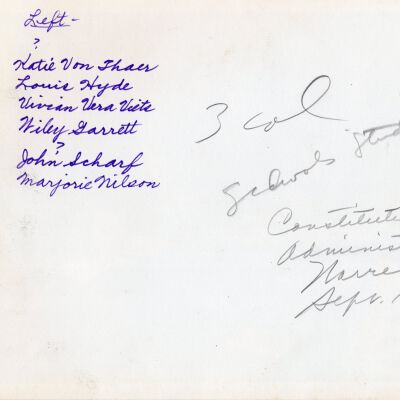 Left-
?
Katie Von Thaer
Louis Hyde
Vivian Vera Viets
Wiley Garrett
?
John Scharf
Marjorie Nilson
3 col
Schools Stud
Constitut
Adminis
Sept. 1